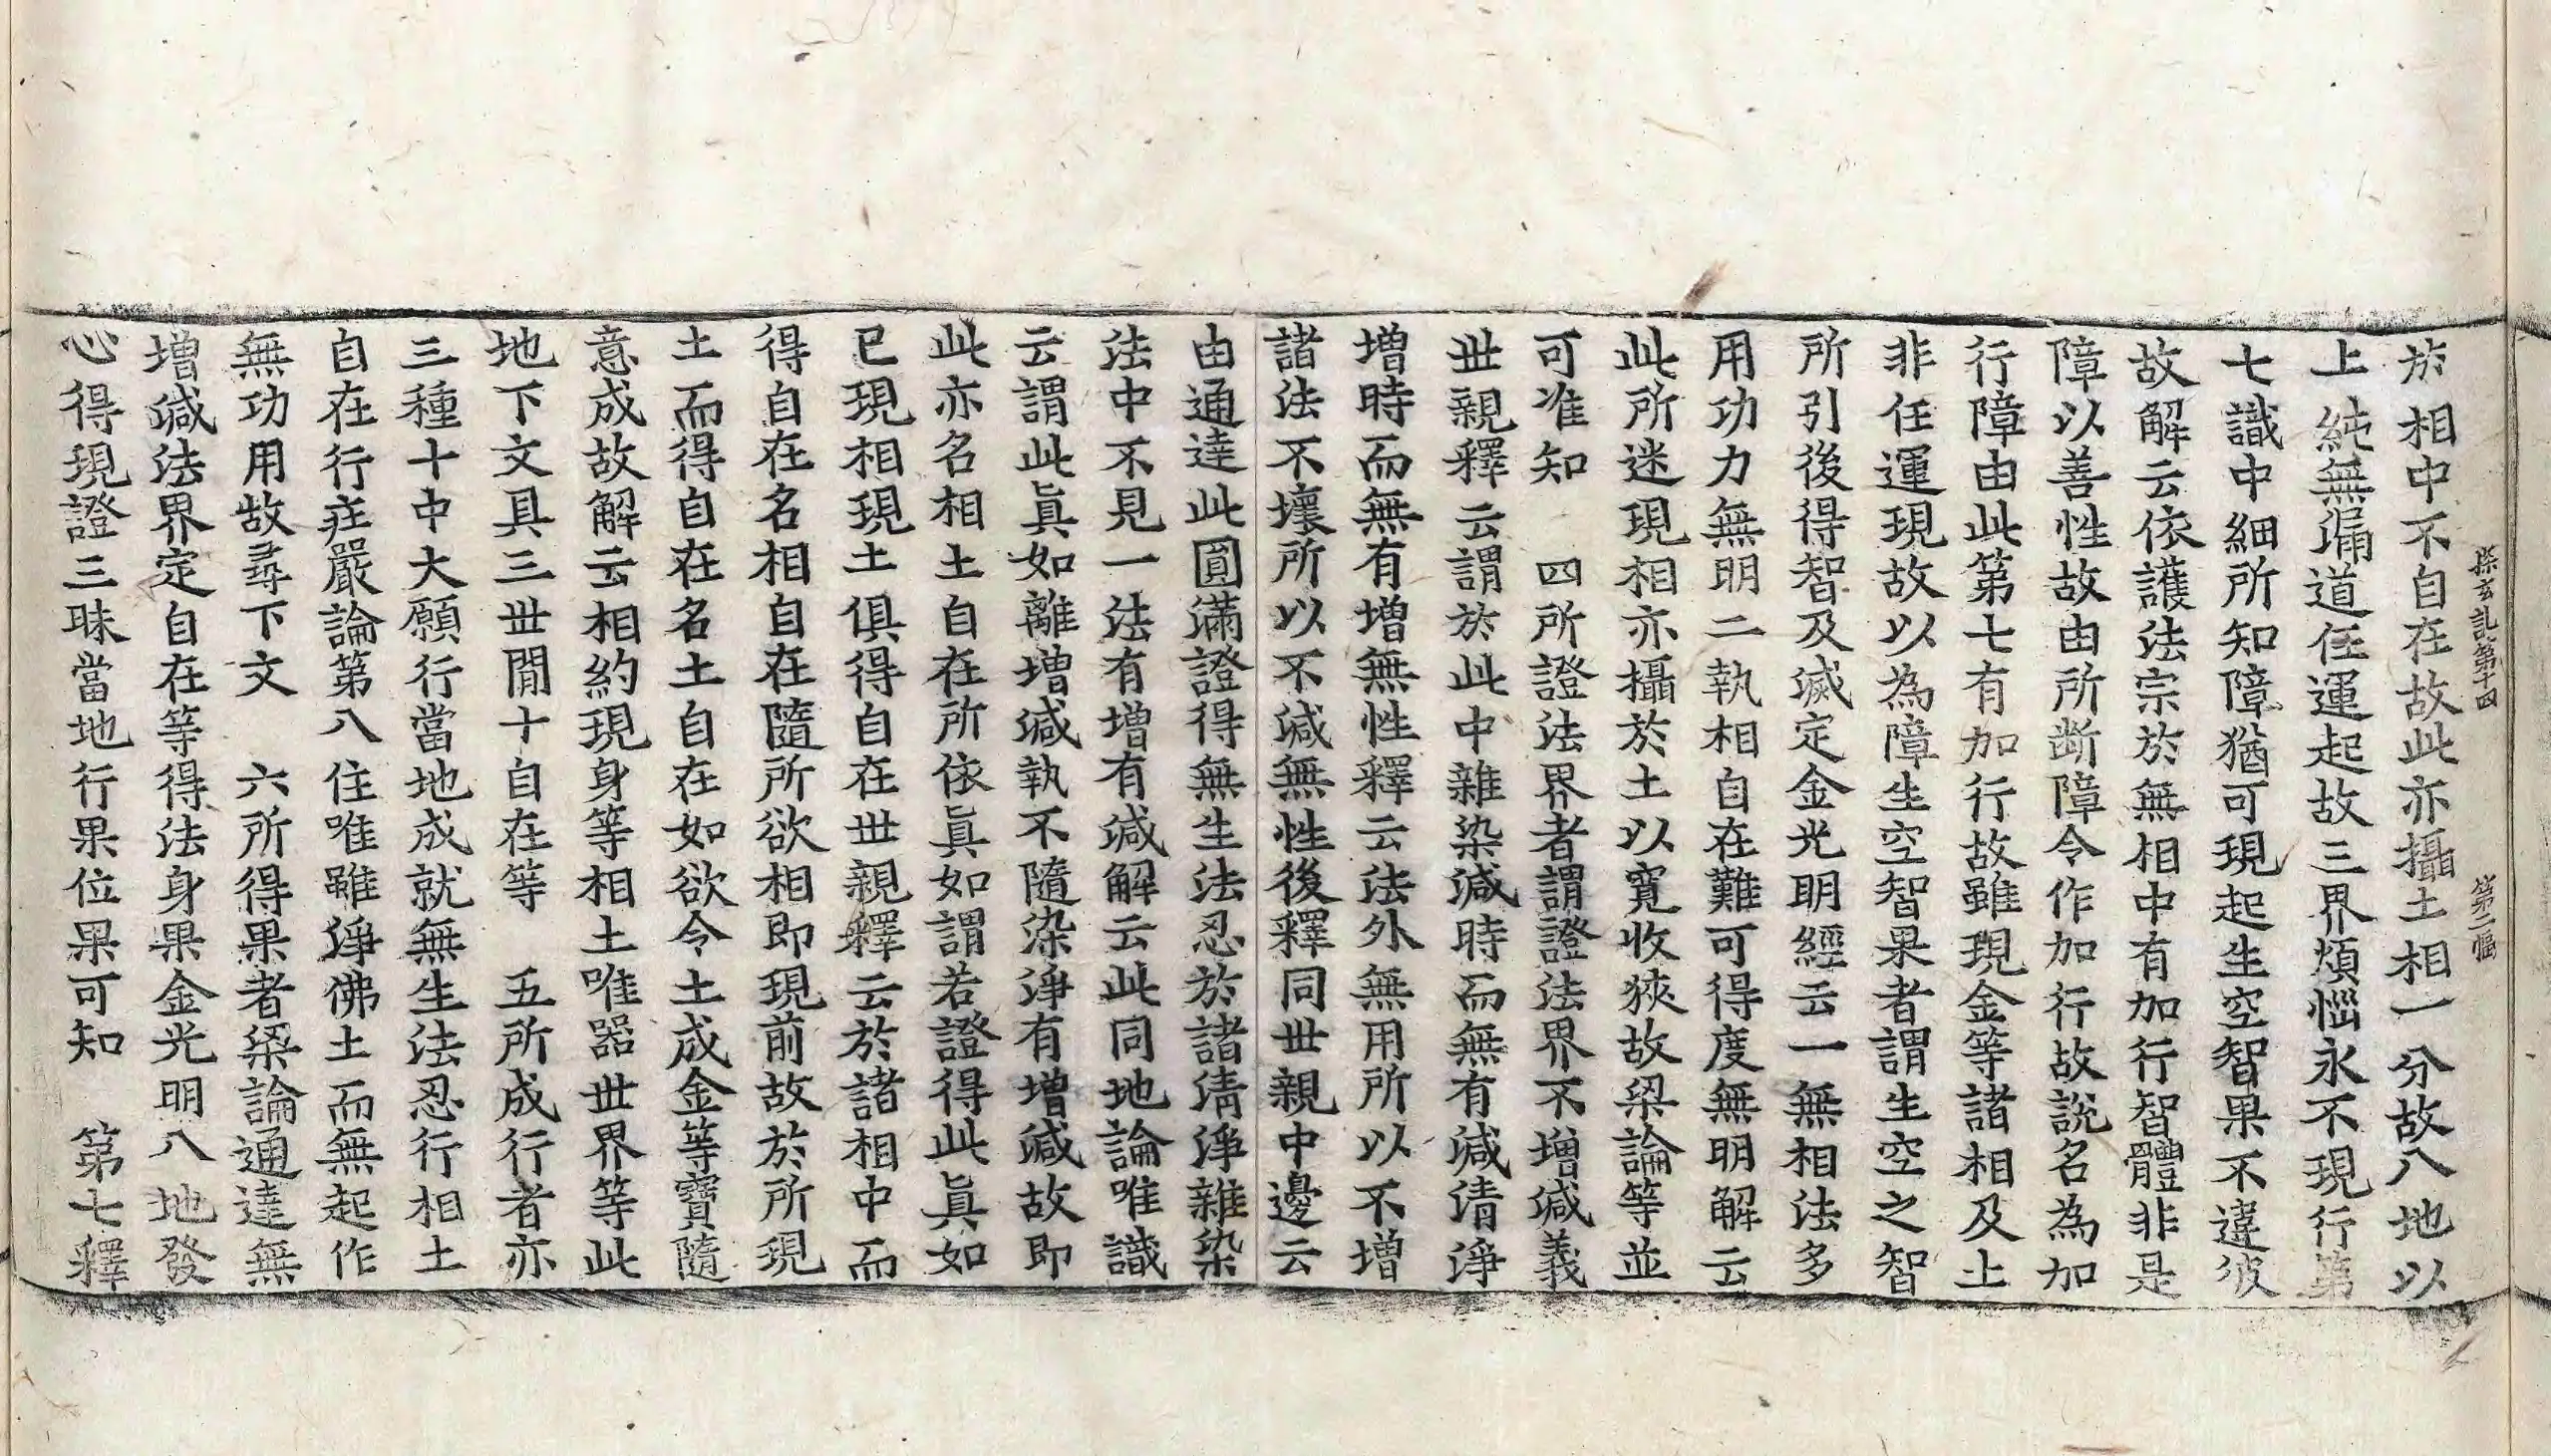 探玄記第十四　第二幅
於相中不自在故此亦攝土相一分故八地以
上純無漏道任運起故三界煩惱永不現行第
七識中細所知障猶可現起生空智果不違彼
故解云依護法宗於無相中有加行智體非是
障以善性故由所断障令作加行故說名為加
行障由此第七有加行故雖現金等諸相及土
非任運現故以為障生空智果者謂生空之智
所引後得智及滅定金光明經云一無相法多
用功力無明二執相自在難可得度無明解云
此所迷現相亦攝於土以寬收狹故梁論等並
可准知　四所證法界者謂證法界不增減義
世親釋云謂於此中雜染減時而無有減清淨
増時而無有増無性釋云法外無用所以不増
諸法不壞所以不減無性後釋同世親中邊云
由通達此圓滿證得無生法忍於諸清淨雜染
法中不見一法有増有減解云此同地論唯識
云謂此眞如離増減執不隨染淨有増減故即
此亦名相土自在所依眞如謂若證得此眞如
已現相現土俱得自在世親釋云於諸相中而
得自在名相自在隨所欲相即現前故於所現
土而得自在名土自在如欲令土成金等寶隨
意成故解云相約現身等相土唯器世界等此
地下文具三世間十自在等　五所成行者亦
三種十中大願行當地成就無生法忍行相土
自在行荘嚴論第八住唯雖淨佛土而無起作
無功用故尋下文　六所得果者梁論通達無
增減法界定自在等得法身果金光明八地發
心得現證三昧當地行果位果可知　第七釋